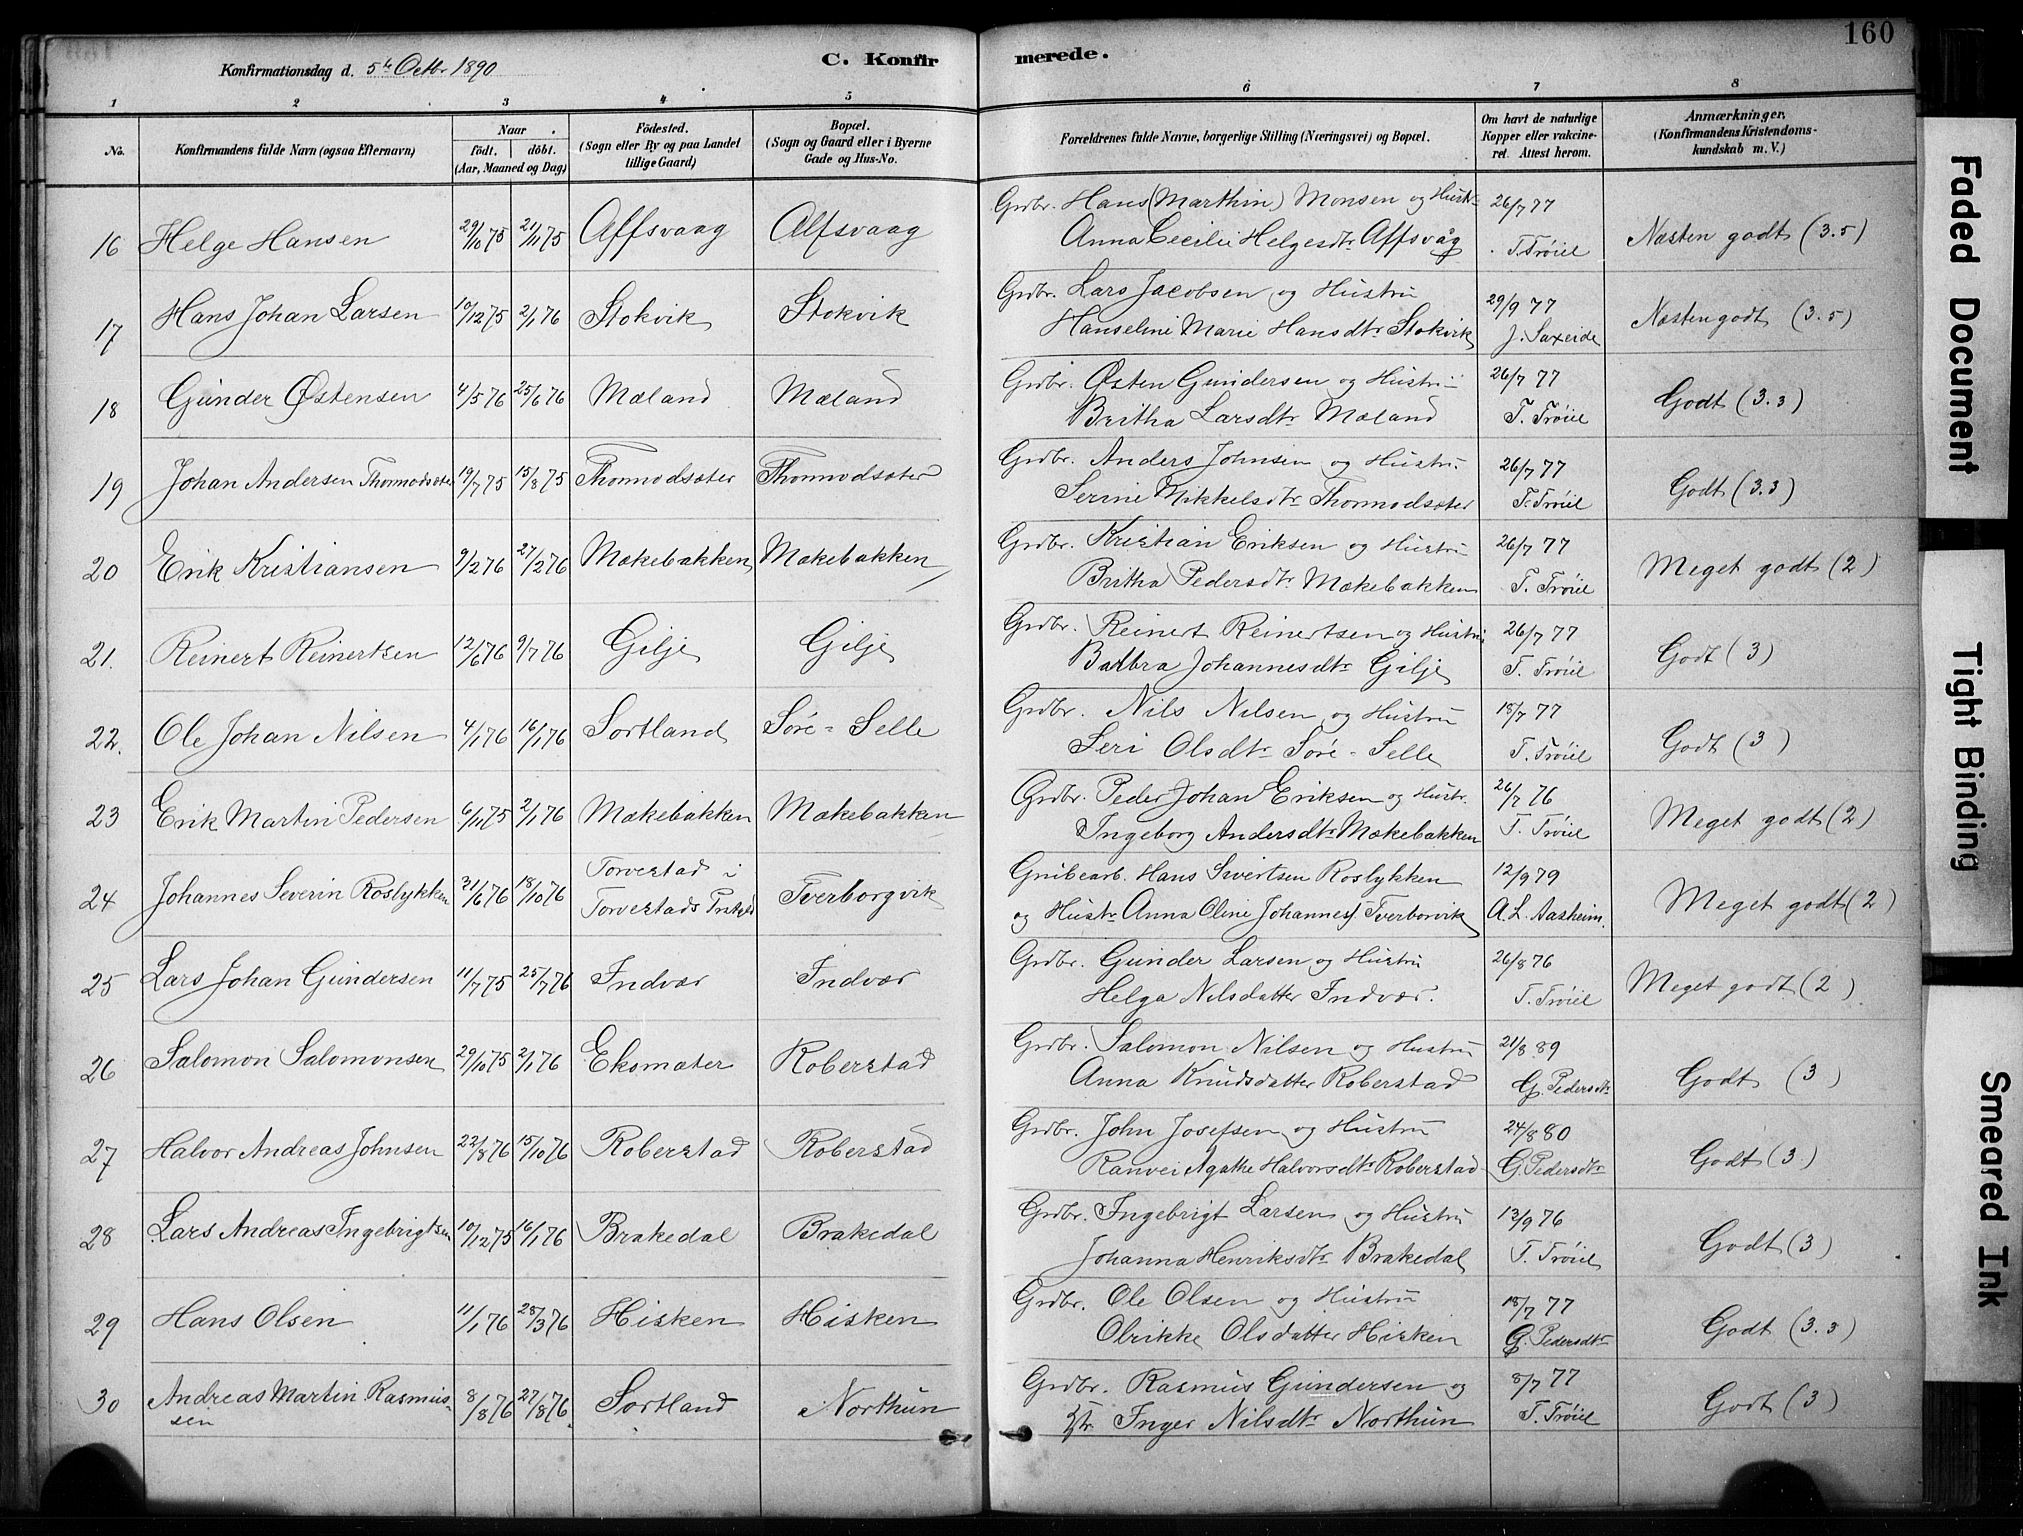 160
Konfirmationsdag d. 5te Octbr 1890 C. Konfirmerede.
1 2 3 4 5 6 7 8
No. Konfirmandens fulde Navn (ogsaa Efternavn) Naar født. døbt. (Aar, Maaned og Dag) Fødested. (Sogn eller By og paa Landet tillige Gaard) Bopæl. (Sogn og Gaard eller i Byerne Gade og Hus-No. Forældrenes fulde Navne, borgerlige Stilling (Næringsvei) og Bopæl. Om havt de naturlige Kopper eller vakcineret. Attest herom. Anmærkninger, (Konfirmandens Kristendomskundskab m. V.)
16 Helge Hansen 29/10 75 21/11 75 Affsvaag Alfsvaag Grdbr. Hans (Marthin) Monsen og Hustr 26/7 77
Anna Cecilie Helgesdtr Affsvåg T. Trøiel Næsten godt (3.5)
17 Hans Johan Larsen 10/12 75 2/1 76 Stokvik Stokvik Grdbr. Lars Jacobsen og Hustru 29/9 77
Hanseline Marie Hansdtr Stokvik J. Saxeide Næsten godt (3.5)
18 Gunder Østensen 4/5 76 25/6 76 Mæland Mæland Grdbr. Østen Gundersen og Hustru 26/7 77
Britha Larsdtr Mæland T. Trøiel Godt (3.3)
19 Johan Andersen Thormodsæter 19/7 75 15/8 75 Thormodsæter Thormodsæter Grdbr. Anders Johnsen og Hustru 26/7 77
Serine Mikkelsdtr Thormodsæter T. Trøiel Godt (3.3)
20 Erik Kristiansen 9/2 76 27/2 76 Mækebakken Mækebakken Grdbr. Kristian Eriksen og Hustru 26/7 77
Britha Pedersdtr Mækebakken T. Trøiel Meget godt (2)
21. Reinert Reinertsen 12/6 76 9/7 76 Gilje Gilje Grdbr. Reinert Reinertsen og Hustru 26/7 77
Barbra Johannesdtr Gilje T. Trøiel Godt (3)
22. Ole Johan Nilsen 4/1 76 16/1 76 Sortland Søre-Selle Grdbr. Nils Nilsen og Hustru 18/7 77
Seri Olsdtr Søre-Selle T. Trøiel Godt (3)
23 Erik Martin Pedersen 6/11 75 2/1 76 Mækebakken Mækebakken Grdbr. Peder Johan Eriksen og Hustr. 26/7 76
Ingeborg Andersdtr Mækebakken T. Trøiel Meget godt (2)
24 Johannes Severin Roslykken 21/6 76 18/10 76 Torvestad i Torvestads Prstgld Tverborgvik Grubearb. Hans Sivertsen Roslykken 12/9 79
og Hustr Anna Oline Johannesd. Tverborvik A. L. Aasheim. Meget godt (2)
25 Lars Johan Gundersen 11/7 75 25/7 76 Indvær Indvær Grdbr. Gunder Larsen og Hustru 26/8 76
Helga Nilsdatter Indvær. T. Trøiel Meget godt (2)
26 Salomon Salomonsen 29/10 75 2/1 76 Eksmæter Roberstad Grdbr. Salomon Nilsen og Hustru 21/8 89
Anna Knudsdatter Roberstad G. Pedersdtr Godt (3)
27 Halvor Andreas Johnsen 22/8 76 15/10 76 Roberstad Roberstad Grdbr. John Josefsen og Hustru 24/8 80
Ranvei Agathe Halvorsdtr Roberstad G. Pedersdtr Godt (3)
28 Lars Andreas Ingebrigtsen 10/12 75 16/1 76 Brakedal Brakedal Grdbr. Ingebrigt Larsen og Hustru 13/9 76
Johanna Henriksdtr Brakedal T. Trøiel Godt (3)
29 Hans Olsen 11/1 76 28/3 76 Hisken Hisken Grdbr. Ole Olsen og Hustru 18/7 77
Olrikke Olsdatter Hisken G. Pedersdtr Godt (3.3)
30 Andreas Martin Rasmussen 8/8 76 27/8 76 Sortland Northun Grdbr. Rasmus Gundersen og 8/7 77
Inger Nilsdtr Northun T. Trøiel Godt (3)
Faded Document
Tight Binding
Smeared Ink